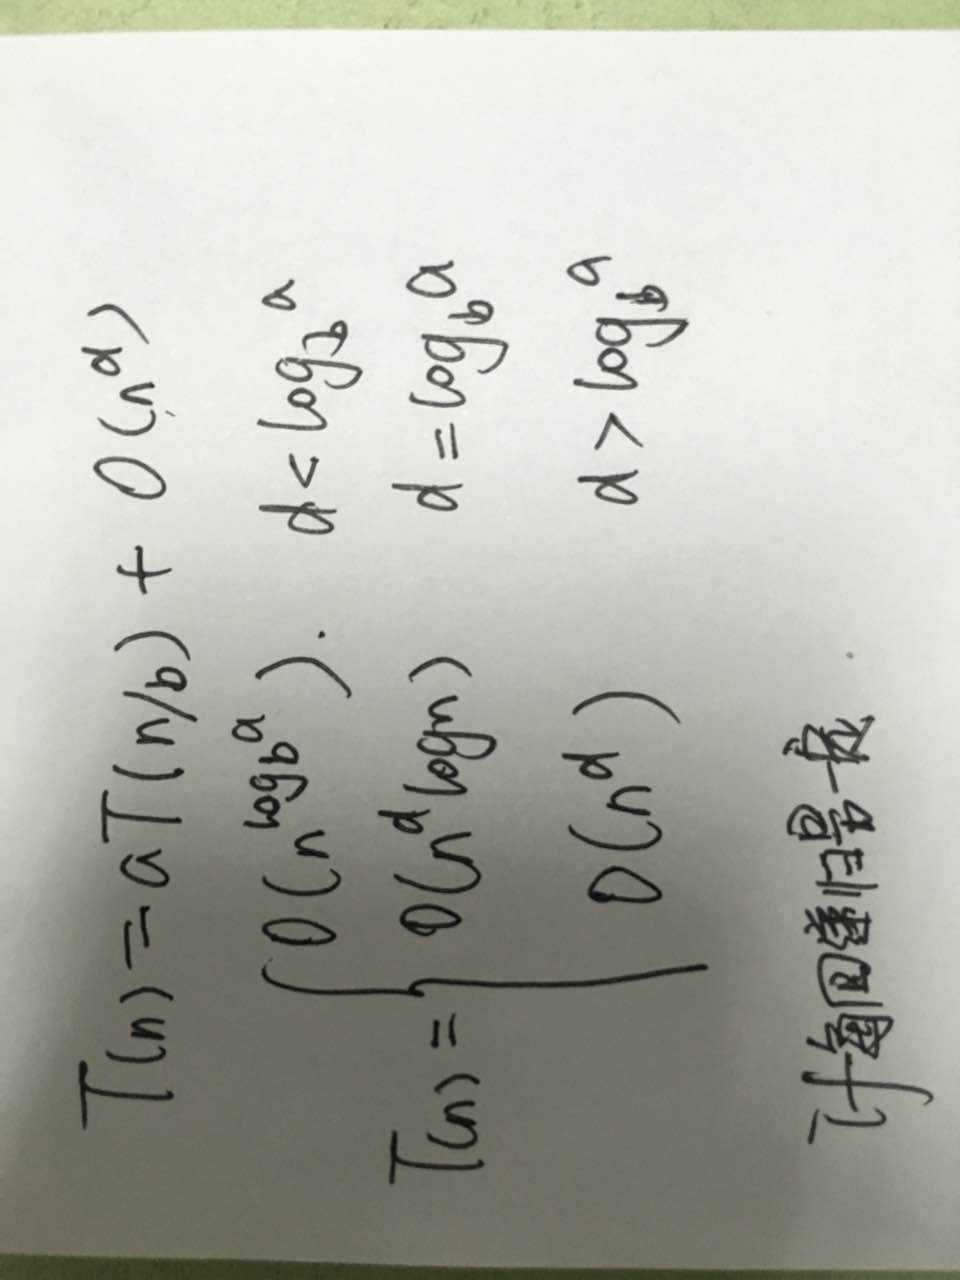 T(n) = aT(n/b) + O(n^d)
O(n^{log_b a}). d < log_b a
T(n) = { O(n^d logn) d = log_b a
O(n^d) d > log_b a